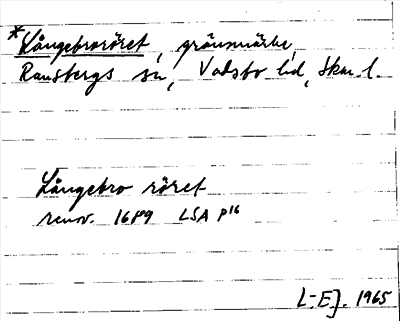 *Långebroröret, gränsmärke,
Ransbergs sn, Vadsbo hd, Skar. l.
Långebro röret
renov. 1689 LSA p16
L-EJ. 1965